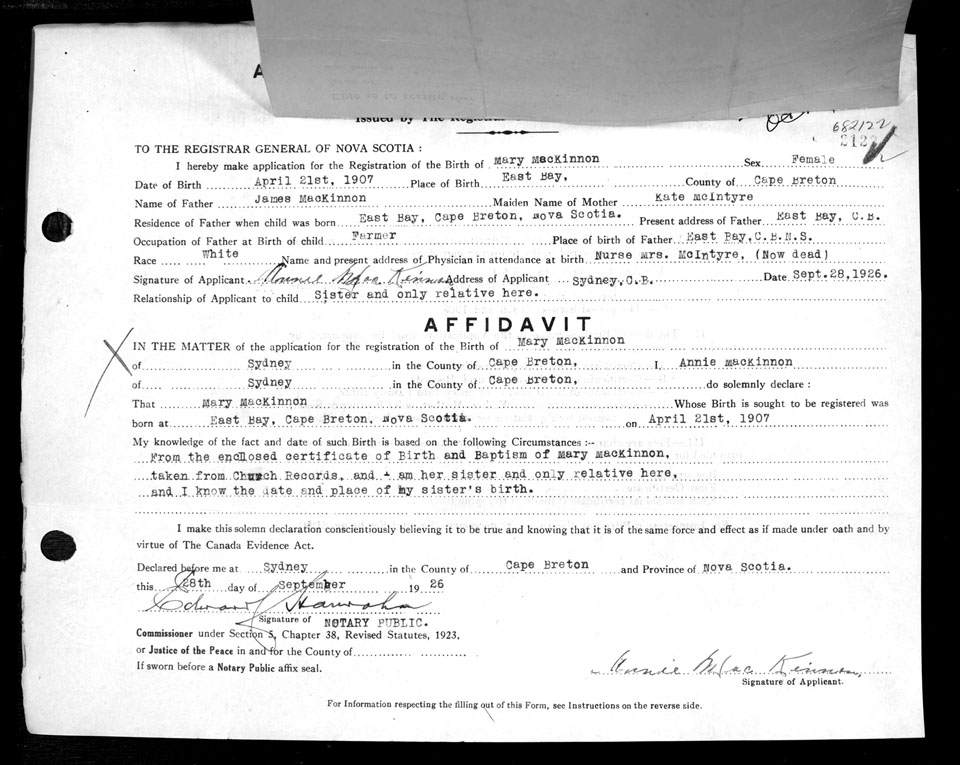 A
Issued by The Regist
682122
2122
TO THE REGISTRAR GENERAL OF NOVA SCOTIA :
I hereby make application for the Registration of the Birth of Mary MacKinnon Sex Female
Date of Birth April 21st, 1907 Place of Birth East Bay, County of Cape Breton
Name of Father James MacKinnon Maiden Name of Mother Kate McIntyre
Residence of Father when child was born East Bay, Cape Breton, Nova Scotia. Present address of Father East Bay, C.B.
Occupation of Father at Birth of child Farmer Place of birth of Father East Bay, C.B.N.S.
Race White Name and present address of Physician in attendance at birth Nurse Mrs. McIntyre, (Now dead)
Signature of Applicant Annie MacKinnon Address of Applicant Sydney, C.B. Date Sept.28,1926.
Relationship of Applicant to child Sister and only relative here.
AFFIDAVIT
IN THE MATTER of the application for the registration of the Birth of Mary MacKinnon
of Sydney in the County of Cape Breton, I, Annie MacKinnon
of Sydney in the County of Cape Breton, do solemnly declare :
That Mary MacKinnon Whose Birth is sought to be registered was
born at East Bay, Cape Breton, Nova Scotia. on April 21st, 1907
My knowledge of the fact and date of such Birth is based on the following Circumstances :--
From the enclosed certificate of Birth and Baptism of Mary MacKinnon,
taken from Church Records, and I am her sister and only relative here,
and I know the date and place of my sister's birth.
I make this solemn declaration conscientiously believing it to be true and knowing that it is of the same force and effect as if made under oath and by
virtue of The Canada Evidence Act.
Declared before me at Sydney in the County of Cape Breton and Province of Nova Scotia.
this 28th day of September 1926
Edward Hanrahan
Signature of NOTARY PUBLIC.
Commissioner under Section 5, Chapter 38, Revised Statutes, 1923,
or Justice of the Peace in and for the County of
If sworn before a Notary Public affix seal.
Annie MacKinnon
Signature of Applicant.
For Information respecting the filling out of this Form, see Instructions on the reverse side.